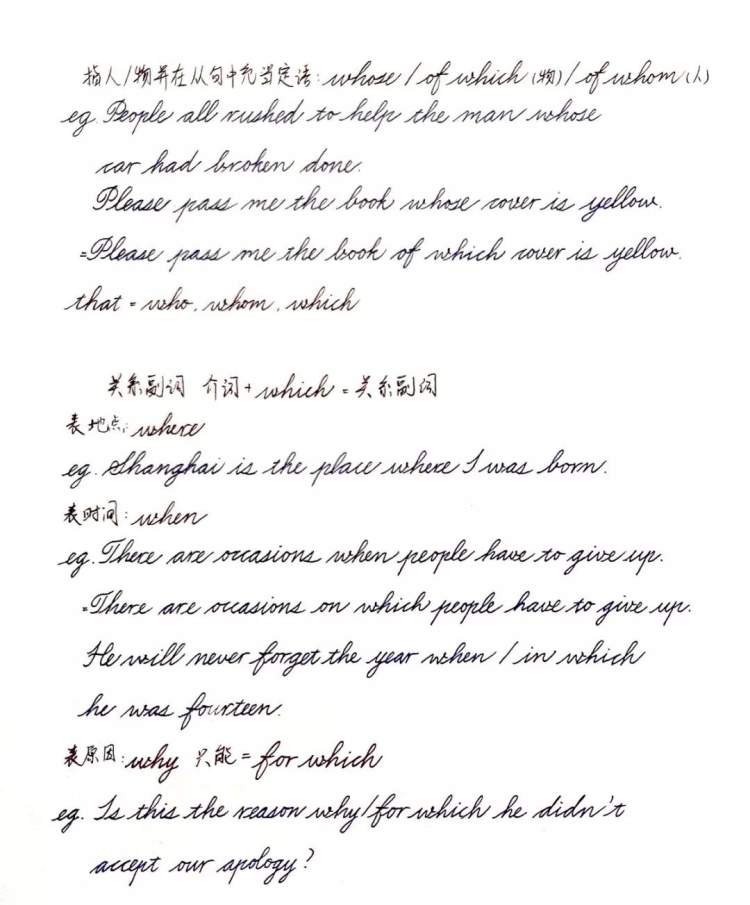 指人/物并在从句中充当定语: whose / of which (物) / of whom (人)
eg. People all rushed to help the man whose
car had broken done.
Please pass me the book whose cover is yellow.
=Please pass me the book of which cover is yellow.
that = who, whom, which
关系副词 介词 + which = 关系副词
表地点: where
eg. Shanghai is the place where I was born.
表时间: when
eg. There are occasions when people have to give up.
=There are occasions on which people have to give up.
He will never forget the year when / in which
he was fourteen.
表原因: why 只能 = for which
eg. Is this the reason why/for which he didn't
accept our apology?